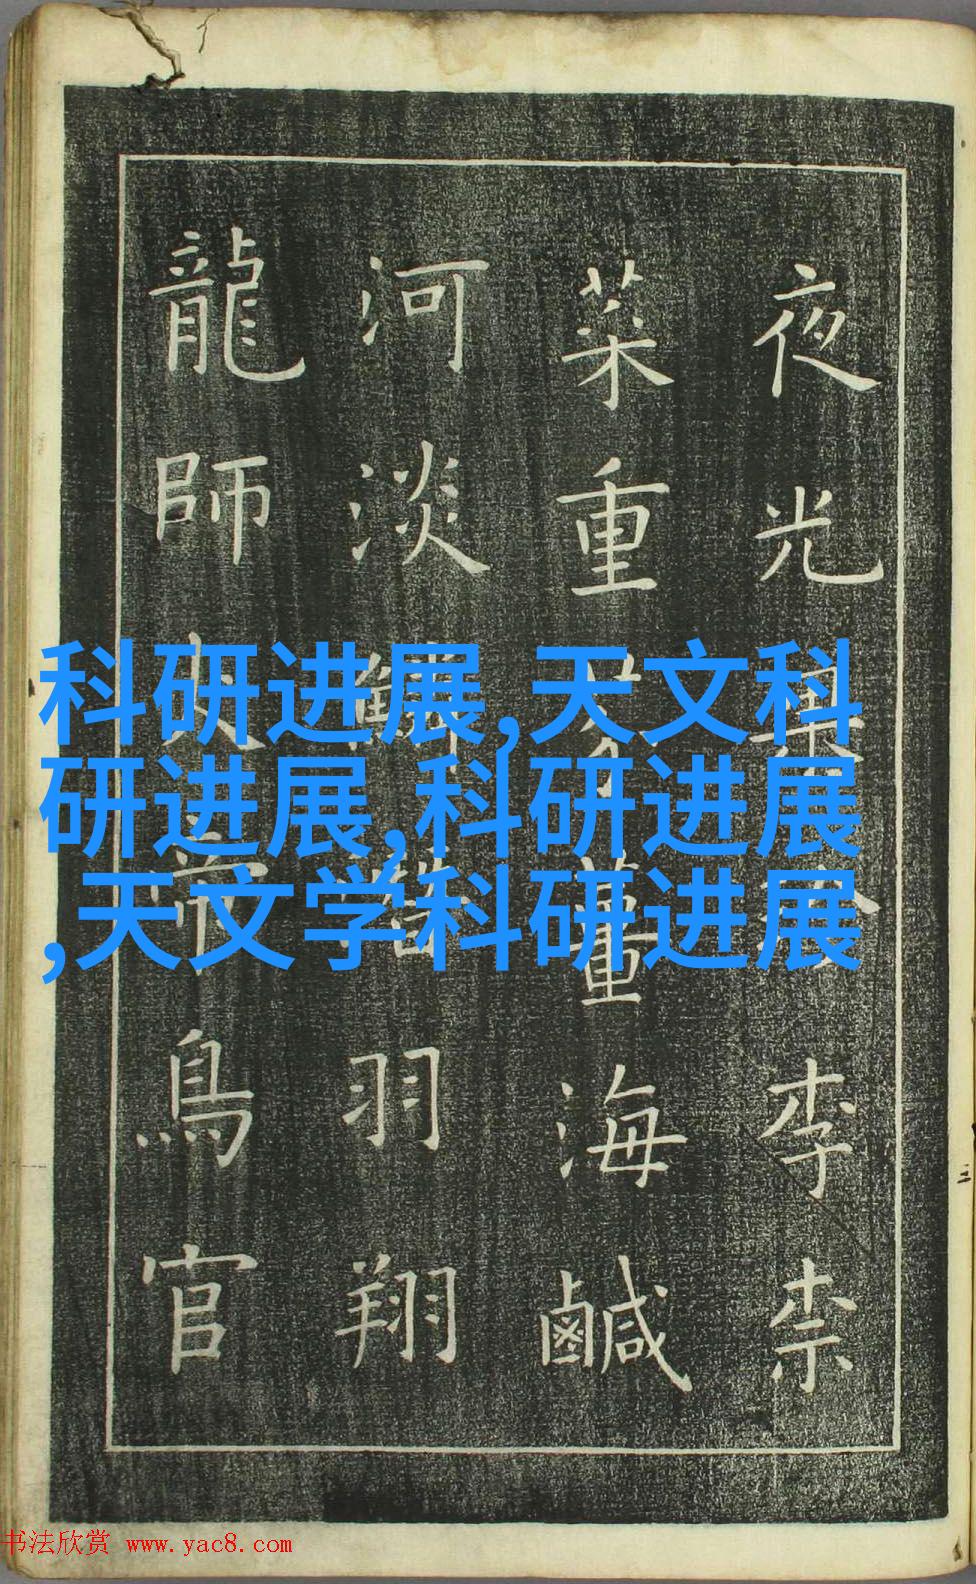 夜光果李柰
菜重芥薑海鹹
河淡羽翔
龍師火帝鳥官
科研进展,天文科
研进展,科研进展
,天文学科研进展
书法欣赏 www.yac8.com